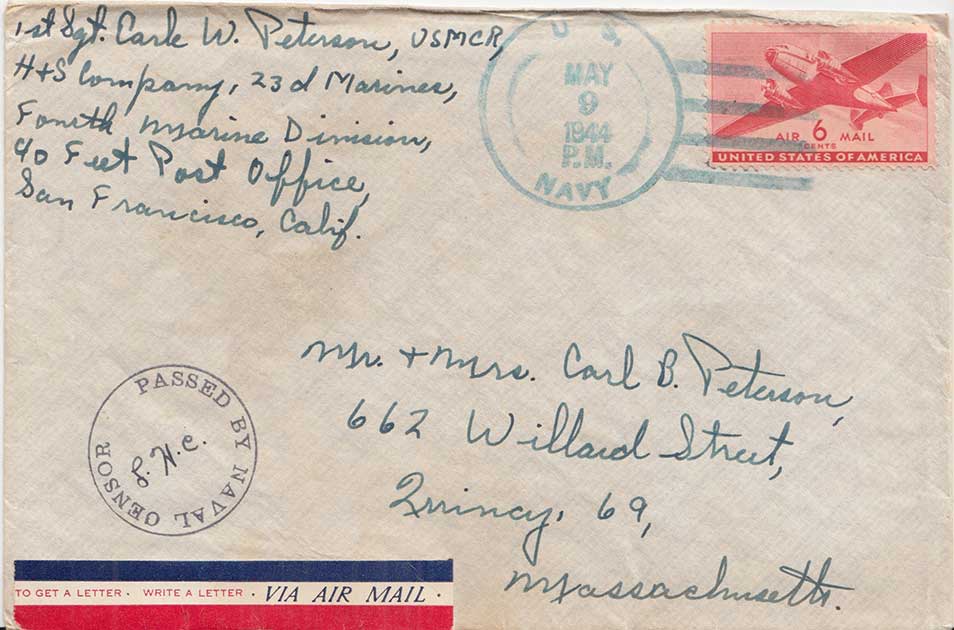 1st Sgt. Carl W. Peterson, USMCR,
H+S Company, 23d Marines,
Fourth Marine Division,
℅ Fleet Post Office,
San Francisco, Calif.
U. S.
MAY
9
1944
P.M.
NAVY
AIR 6 MAIL
CENTS
UNITED STATES OF AMERICA
Mr. + Mrs. Carl B. Peterson,
662 Willard Street,
Quincy, 69,
Massachusetts.
PASSED BY NAVAL CENSOR
TO GET A LETTER · WRITE A LETTER · VIA AIR MAIL ·